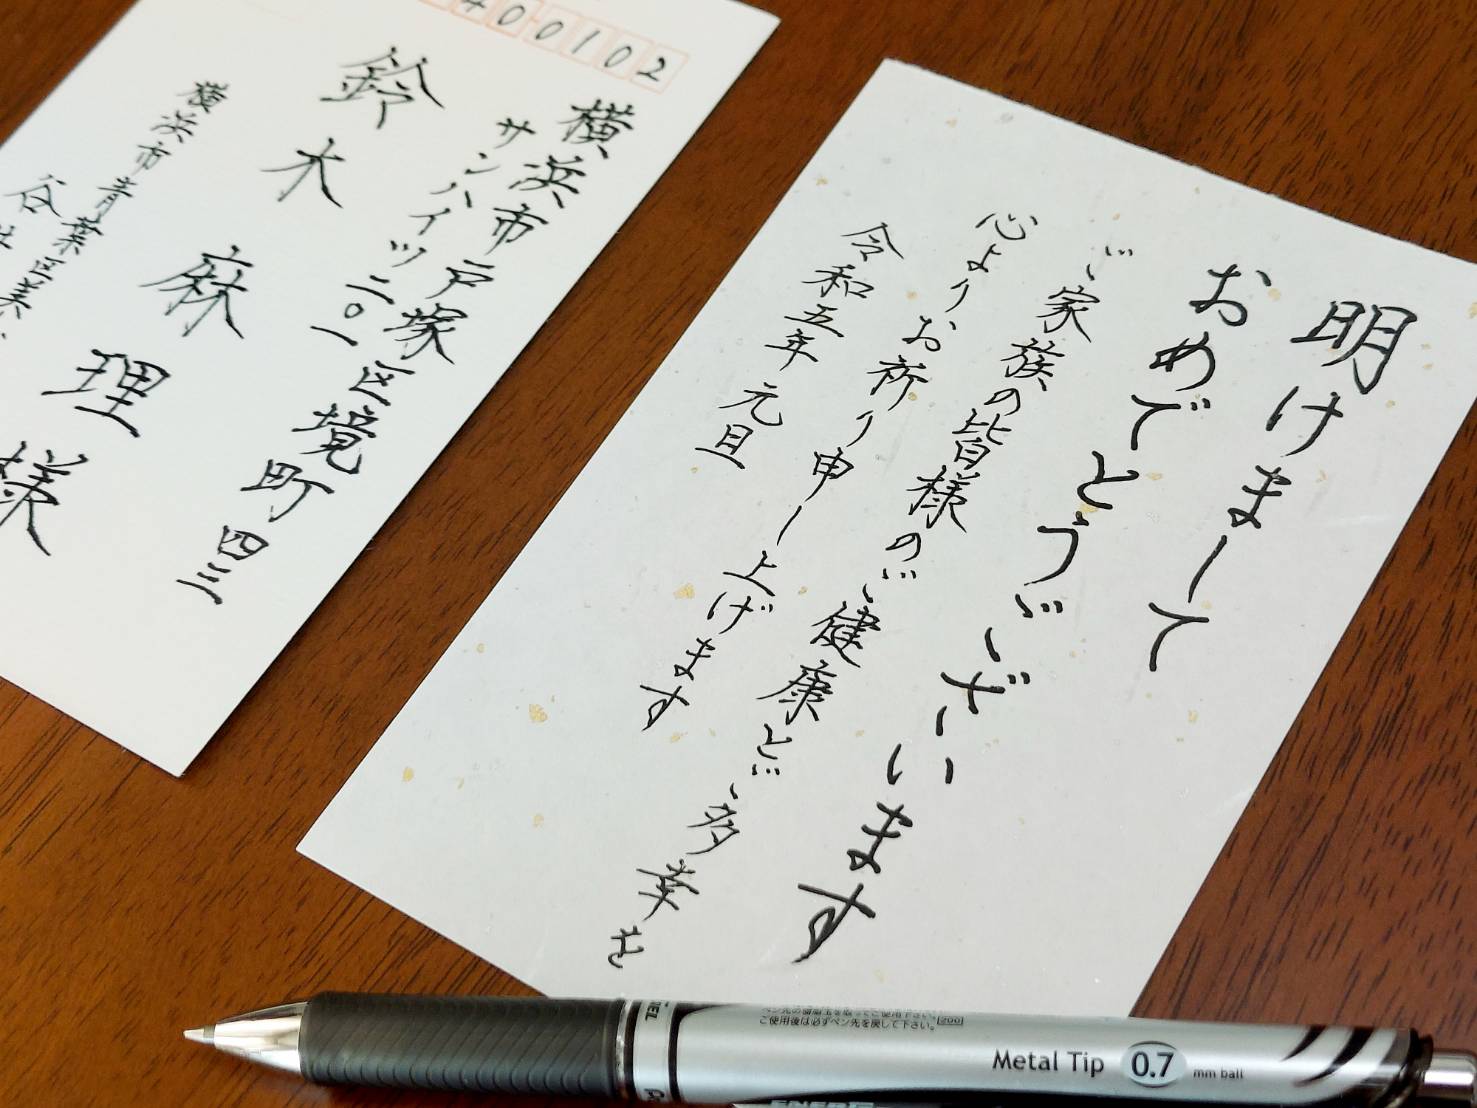 明けまして
おめでとうございます
ご家族の皆様のご健康とご多幸を
心よりお祈り申し上げます
令和五年 元旦
400102
横浜市戸塚区境町四三
サンハイツ二〇一
鈴木麻理様
横浜市青葉区美
谷
ペン先の
ご使用後は必ずペン先を戻して下さい。
200
Metal Tip 0.7 mm ball